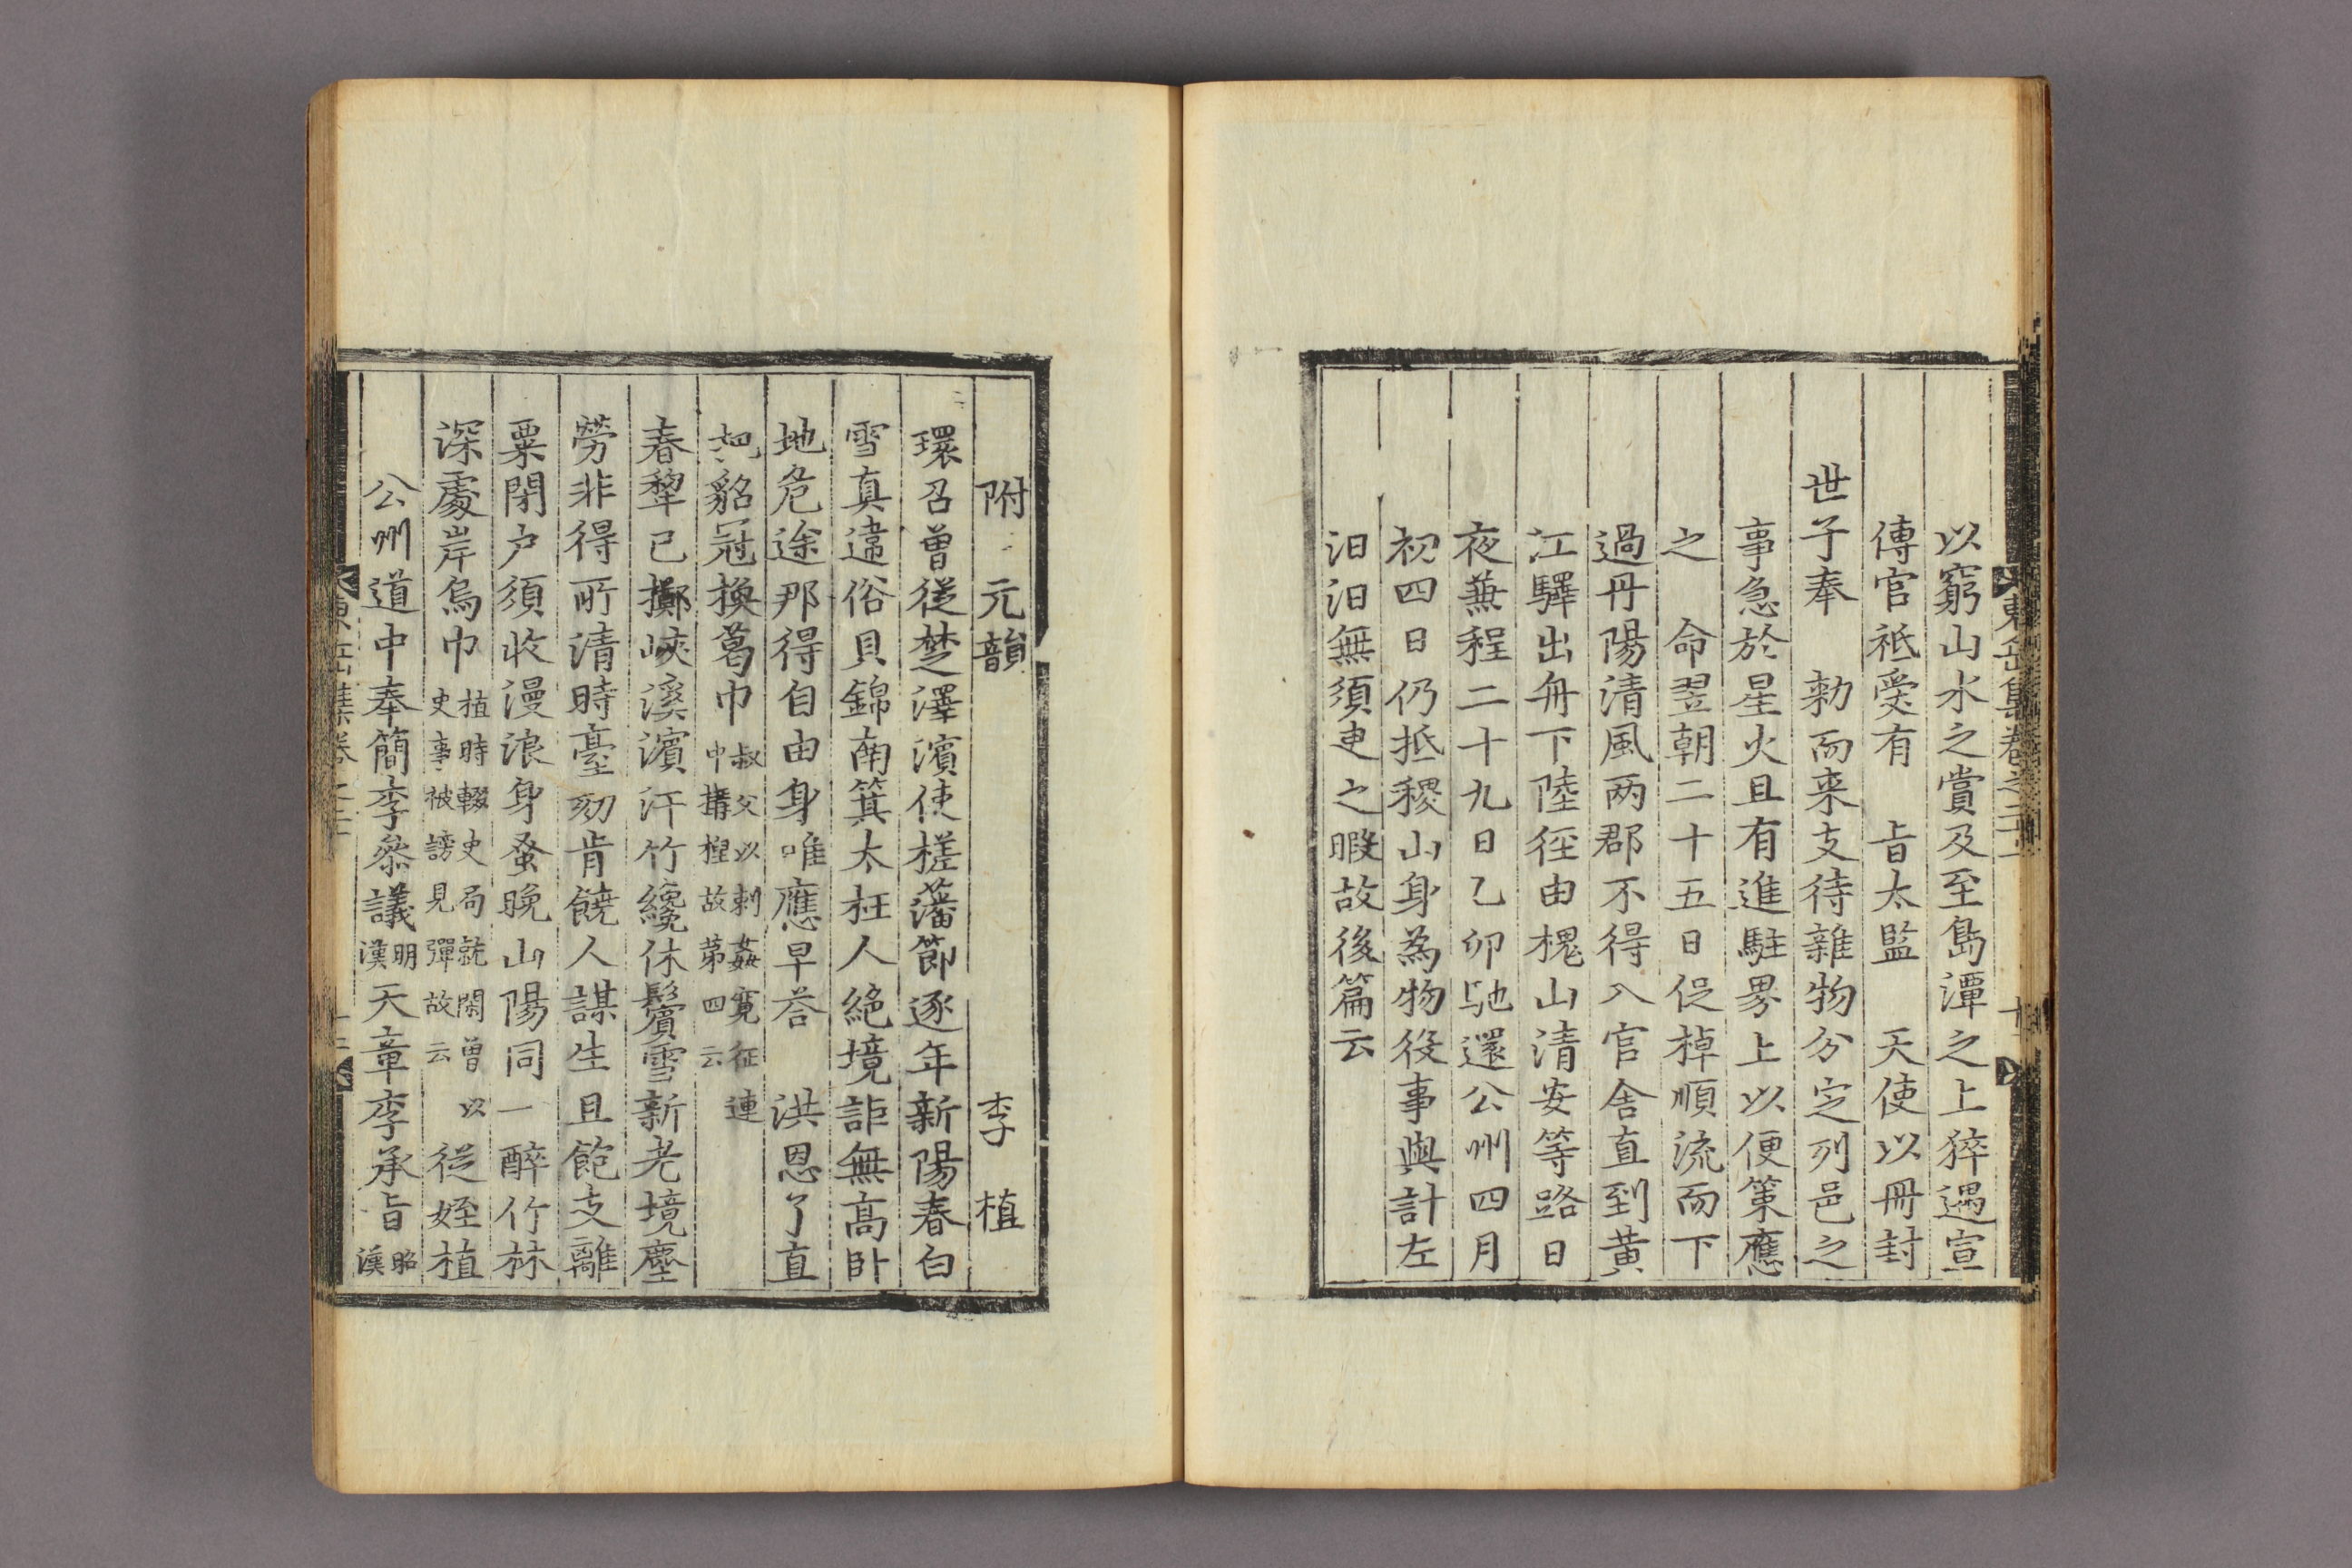 東岳集卷之二十
以窮山水之賞及至島潭之上猝遇宣
傳官祗受有 旨太監 天使以冊封
世子奉 勑而来支待雜物分定列邑之
事急於星火且有進駐界上以便策應
之 命翌朝二十五日促棹順流而下
過丹陽清風两郡不得入官舍直到黃
江驛出舟下陸徑由槐山清安等路日
夜兼程二十九日乙卯馳還公州四月
初四日仍抵稷山身為物役事與計左
汨汨無須臾之暇故後篇云
附 元韻 李植
環召曾從楚澤濱使槎藩節逐年新陽春白
雪真違俗貝錦南箕太枉人絕境詎無高卧
地危途那得自由身唯應早荅 洪恩了直
把貂冠換葛巾叔父以刺姦寃征連中搆捏故第四云
春犂已擲峽溪濱汗竹纔休鬢雪新老境塵
勞非得所清時臺劾肯饒人謀生且飽支離
粟閉户須收漫浪身蚤晚山陽同一醉竹林
深處岸烏巾植時輟史局就閑曾以史事被謗見彈故云從姪植
公州道中奉簡李叅議明漢天章李承旨昭漢
東岳集卷之二十